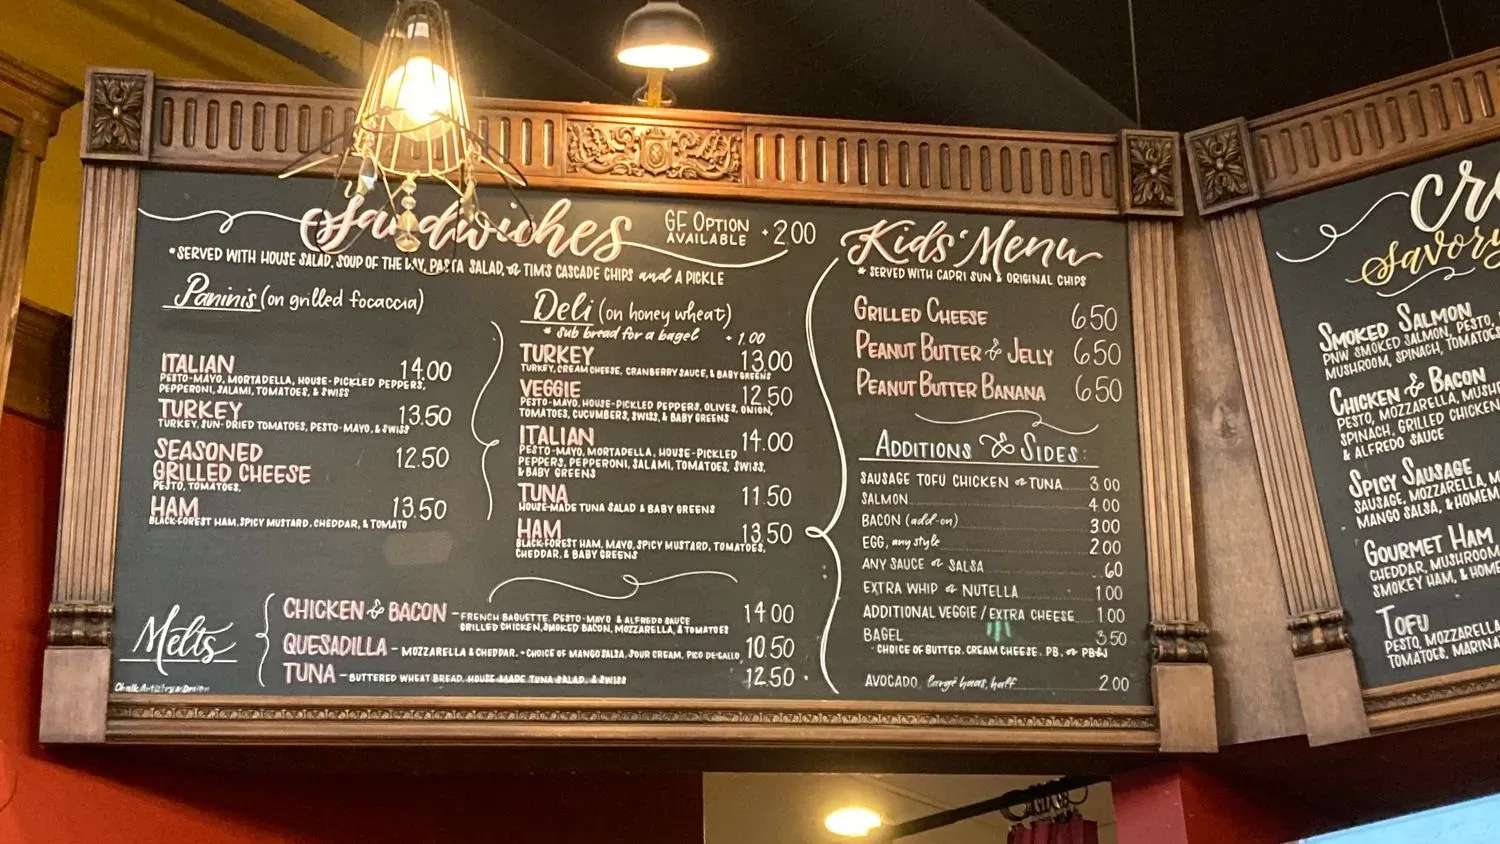 Sandwiches
GF OPTION
AVAILABLE +2.00
*SERVED WITH HOUSE SALAD, SOUP OF THE DAY, PASTA SALAD, or TIM'S CASCADE CHIPS and A PICKLE
Paninis (on grilled focaccia)
ITALIAN 14.00
PESTO-MAYO, MORTADELLA, HOUSE-PICKLED PEPPERS,
PEPPERONI, SALAMI, TOMATOES, & SWISS
TURKEY 13.50
TURKEY, SUN-DRIED TOMATOES, PESTO-MAYO, & SWISS
SEASONED
GRILLED CHEESE 12.50
PESTO, TOMATOES,
HAM 13.50
BLACK-FOREST HAM, SPICY MUSTARD, CHEDDAR, & TOMATO
Deli (on honey wheat)
* sub bread for a bagel +1.00
TURKEY 13.00
TURKEY, CREAM CHEESE, CRANBERRY SAUCE, & BABY GREENS
VEGGIE 12.50
PESTO-MAYO, HOUSE-PICKLED PEPPERS, OLIVES, ONION,
TOMATOES, CUCUMBERS, SWISS, & BABY GREENS
ITALIAN 14.00
PESTO-MAYO, MORTADELLA, HOUSE-PICKLED
PEPPERS, PEPPERONI, SALAMI, TOMATOES, SWISS,
& BABY GREENS
TUNA 11.50
HOUSE-MADE TUNA SALAD & BABY GREENS
HAM 13.50
BLACK-FOREST HAM, MAYO, SPICY MUSTARD, TOMATOES,
CHEDDAR, & BABY GREENS
Melts
CHICKEN & BACON - FRENCH BAGUETTE, PESTO-MAYO & ALFREDO SAUCE 14.00
GRILLED CHICKEN, SMOKED BACON, MOZZARELLA, & TOMATOES
QUESADILLA - MOZZARELLA & CHEDDAR. + CHOICE OF MANGO SALSA, SOUR CREAM, PICO DE GALLO 10.50
TUNA - BUTTERED WHEAT BREAD, HOUSE-MADE TUNA SALAD, & SWISS 12.50
Chalk Artistry & Design
Kids' Menu
* SERVED WITH CAPRI SUN & ORIGINAL CHIPS
GRILLED CHEESE 6.50
PEANUT BUTTER & JELLY 6.50
PEANUT BUTTER BANANA 6.50
ADDITIONS & SIDES:
SAUSAGE TOFU CHICKEN or TUNA 3.00
SALMON 4.00
BACON (add-on) 3.00
EGG, any style 2.00
ANY SAUCE or SALSA .60
EXTRA WHIP or NUTELLA 1.00
ADDITIONAL VEGGIE / EXTRA CHEESE 1.00
BAGEL 3.50
- CHOICE OF BUTTER, CREAM CHEESE, PB, or PB&J
AVOCADO large haas, half 2.00
Savory
SMOKED SALMON
PNW SMOKED SALMON, PESTO,
MUSHROOM, SPINACH, TOMATOES
CHICKEN & BACON
PESTO, MOZZARELLA,
SPINACH, GRILLED CHICKEN
& ALFREDO SAUCE
SPICY SAUSAGE
SAUSAGE, MOZZARELLA,
MANGO SALSA, &
GOURMET HAM
CHEDDAR, MUSHROOM
SMOKEY HAM, &
TOFU
PESTO, MOZZARELLA
TOMATOES,